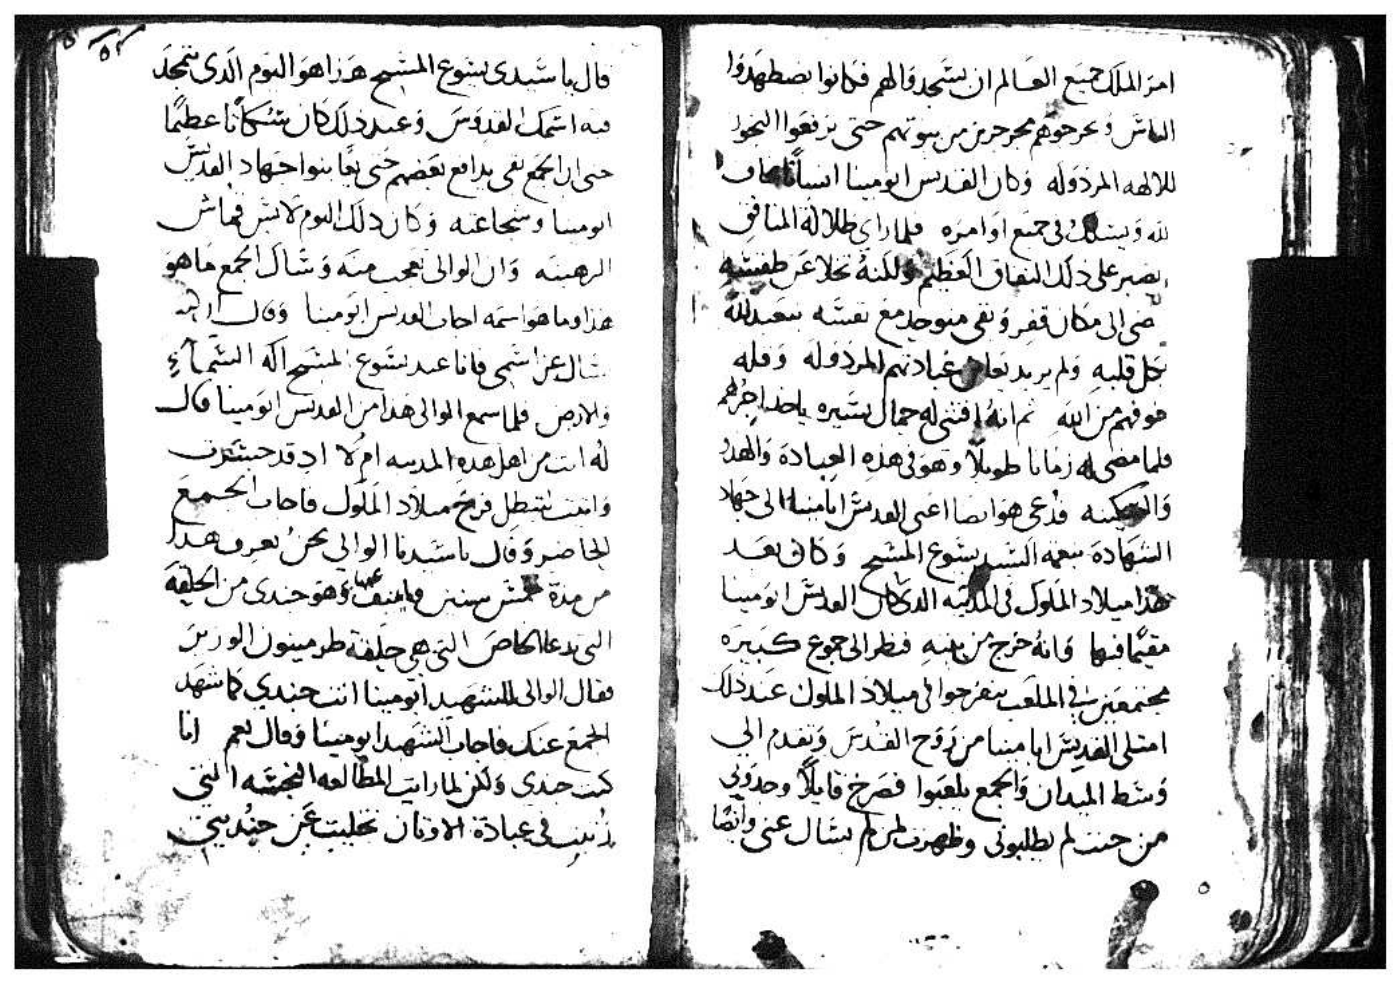 امر الملك جميع العالم ان يسجدوا لهم فكانوا يضطهدوا
الناس ويخرجوهم مجرجرين من بيوتهم حتى يرفعوا البخور
للالهه المردوله وكان القديس ابومينا انسانًا خاف
لله ويسلك في جميع اوامره فلما راي طلالة المنافق
يصبر على دلك النفاق العظيم ولكنه تخلا عن طقسه
ضى الى مكان قفر وبقى متوحد مع نفسه يتعبد لله
بكل قلبه ولم يريد عبادتهم المردوله وقله
خوفهم من الله ثم انه اقتنى له جمال يسيره ياخد اجرهم
فلما مضى له زمانا طويلًا وهو في هذه العبادة والهدو
والسكينه فدعى هو ايضا اعنى القديس ابامينا الى جهاد
الشهادة بنعمه السيد يسوع المسيح وكان بعد
هذا ميلاد الملوك في المدينه الدى كان القديس ابومينا
مقيمًا فيها وانه خرج من بيته فنظر الى جموع كبيره
مجتمعين في الملعب يتفرجوا في ميلاد الملوك عند ذلك
امتلى القديس ابامينا من روح القدس وتقدم الى
وسط الميدان والجمع يلعبوا فصرخ قايلًا وجدوني
من حيث لم يطلبوني وظهرت لمن لم يسال عنى وايضًا
قال يا سيدى يسوع المسيح هذا هو اليوم الذى يتمجد
فيه اسمك القدوس وعند ذلك كان سكاتًا عظيمًا
حتى ان الجمع بقى يدافع بعضهم حتى يعاينوا جهاد القديس
ابومينا وشجاعته وكان دلك اليوم لابس قماش
الرهبنه وان الوالى تعجب منه وسال الجمع ما هو
هذا وما هو اسمه اجاب القديس ابومينا وقال
تسال عن اسمى فانا عبد يسوع المسيح اله السماء
والارض فلما سمع الوالى هذا من القديس ابومينا قال
له انت من اهل هذه المدينه ام لا اد قد
وانت تبطل فرح ميلاد الملوك فاجاب الجميع
الحاضر وقال يا سيدنا الوالي نحن نعرف هدا
من مدة خمس سنين وهو جندى من الخليقه
التى تدعا الخاص التى هي خليقة طرمينون الوزير
فقال الوالى للشهيد ابومينا انت جندي كما شهد
الجمع عنك فاجاب الشهيد ابومينا وقال نعم انا
كنت جندى ولكن لما رايت المطالعه النجسه التى
في عبادة الاوثان تخليت عن جنديتي